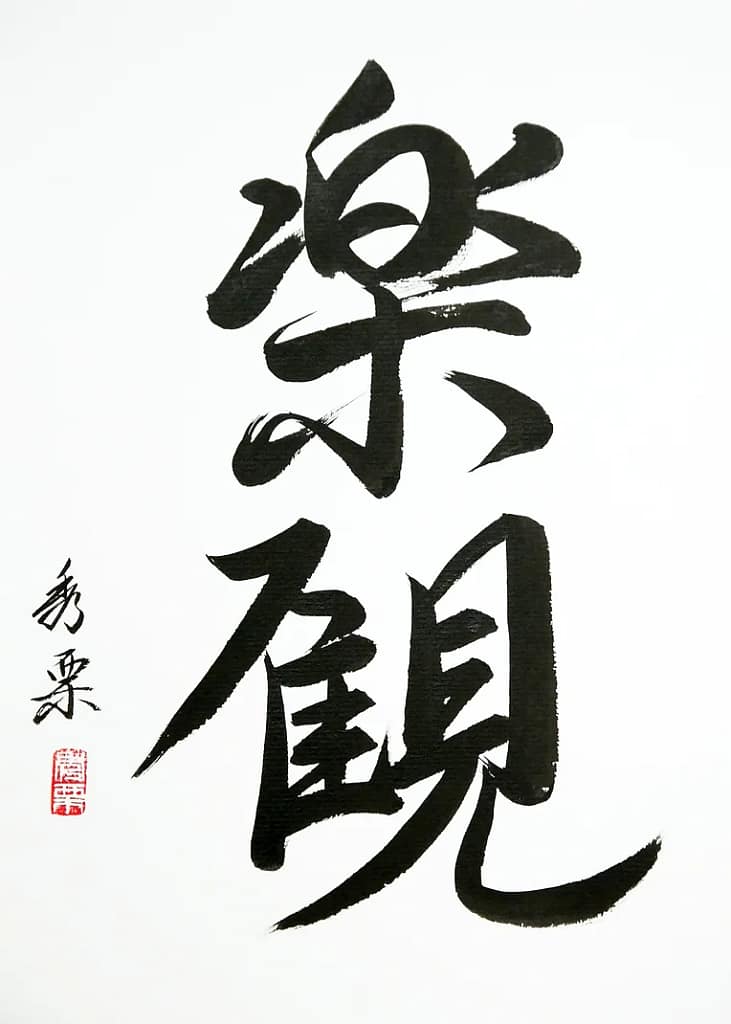 楽観
秀栗